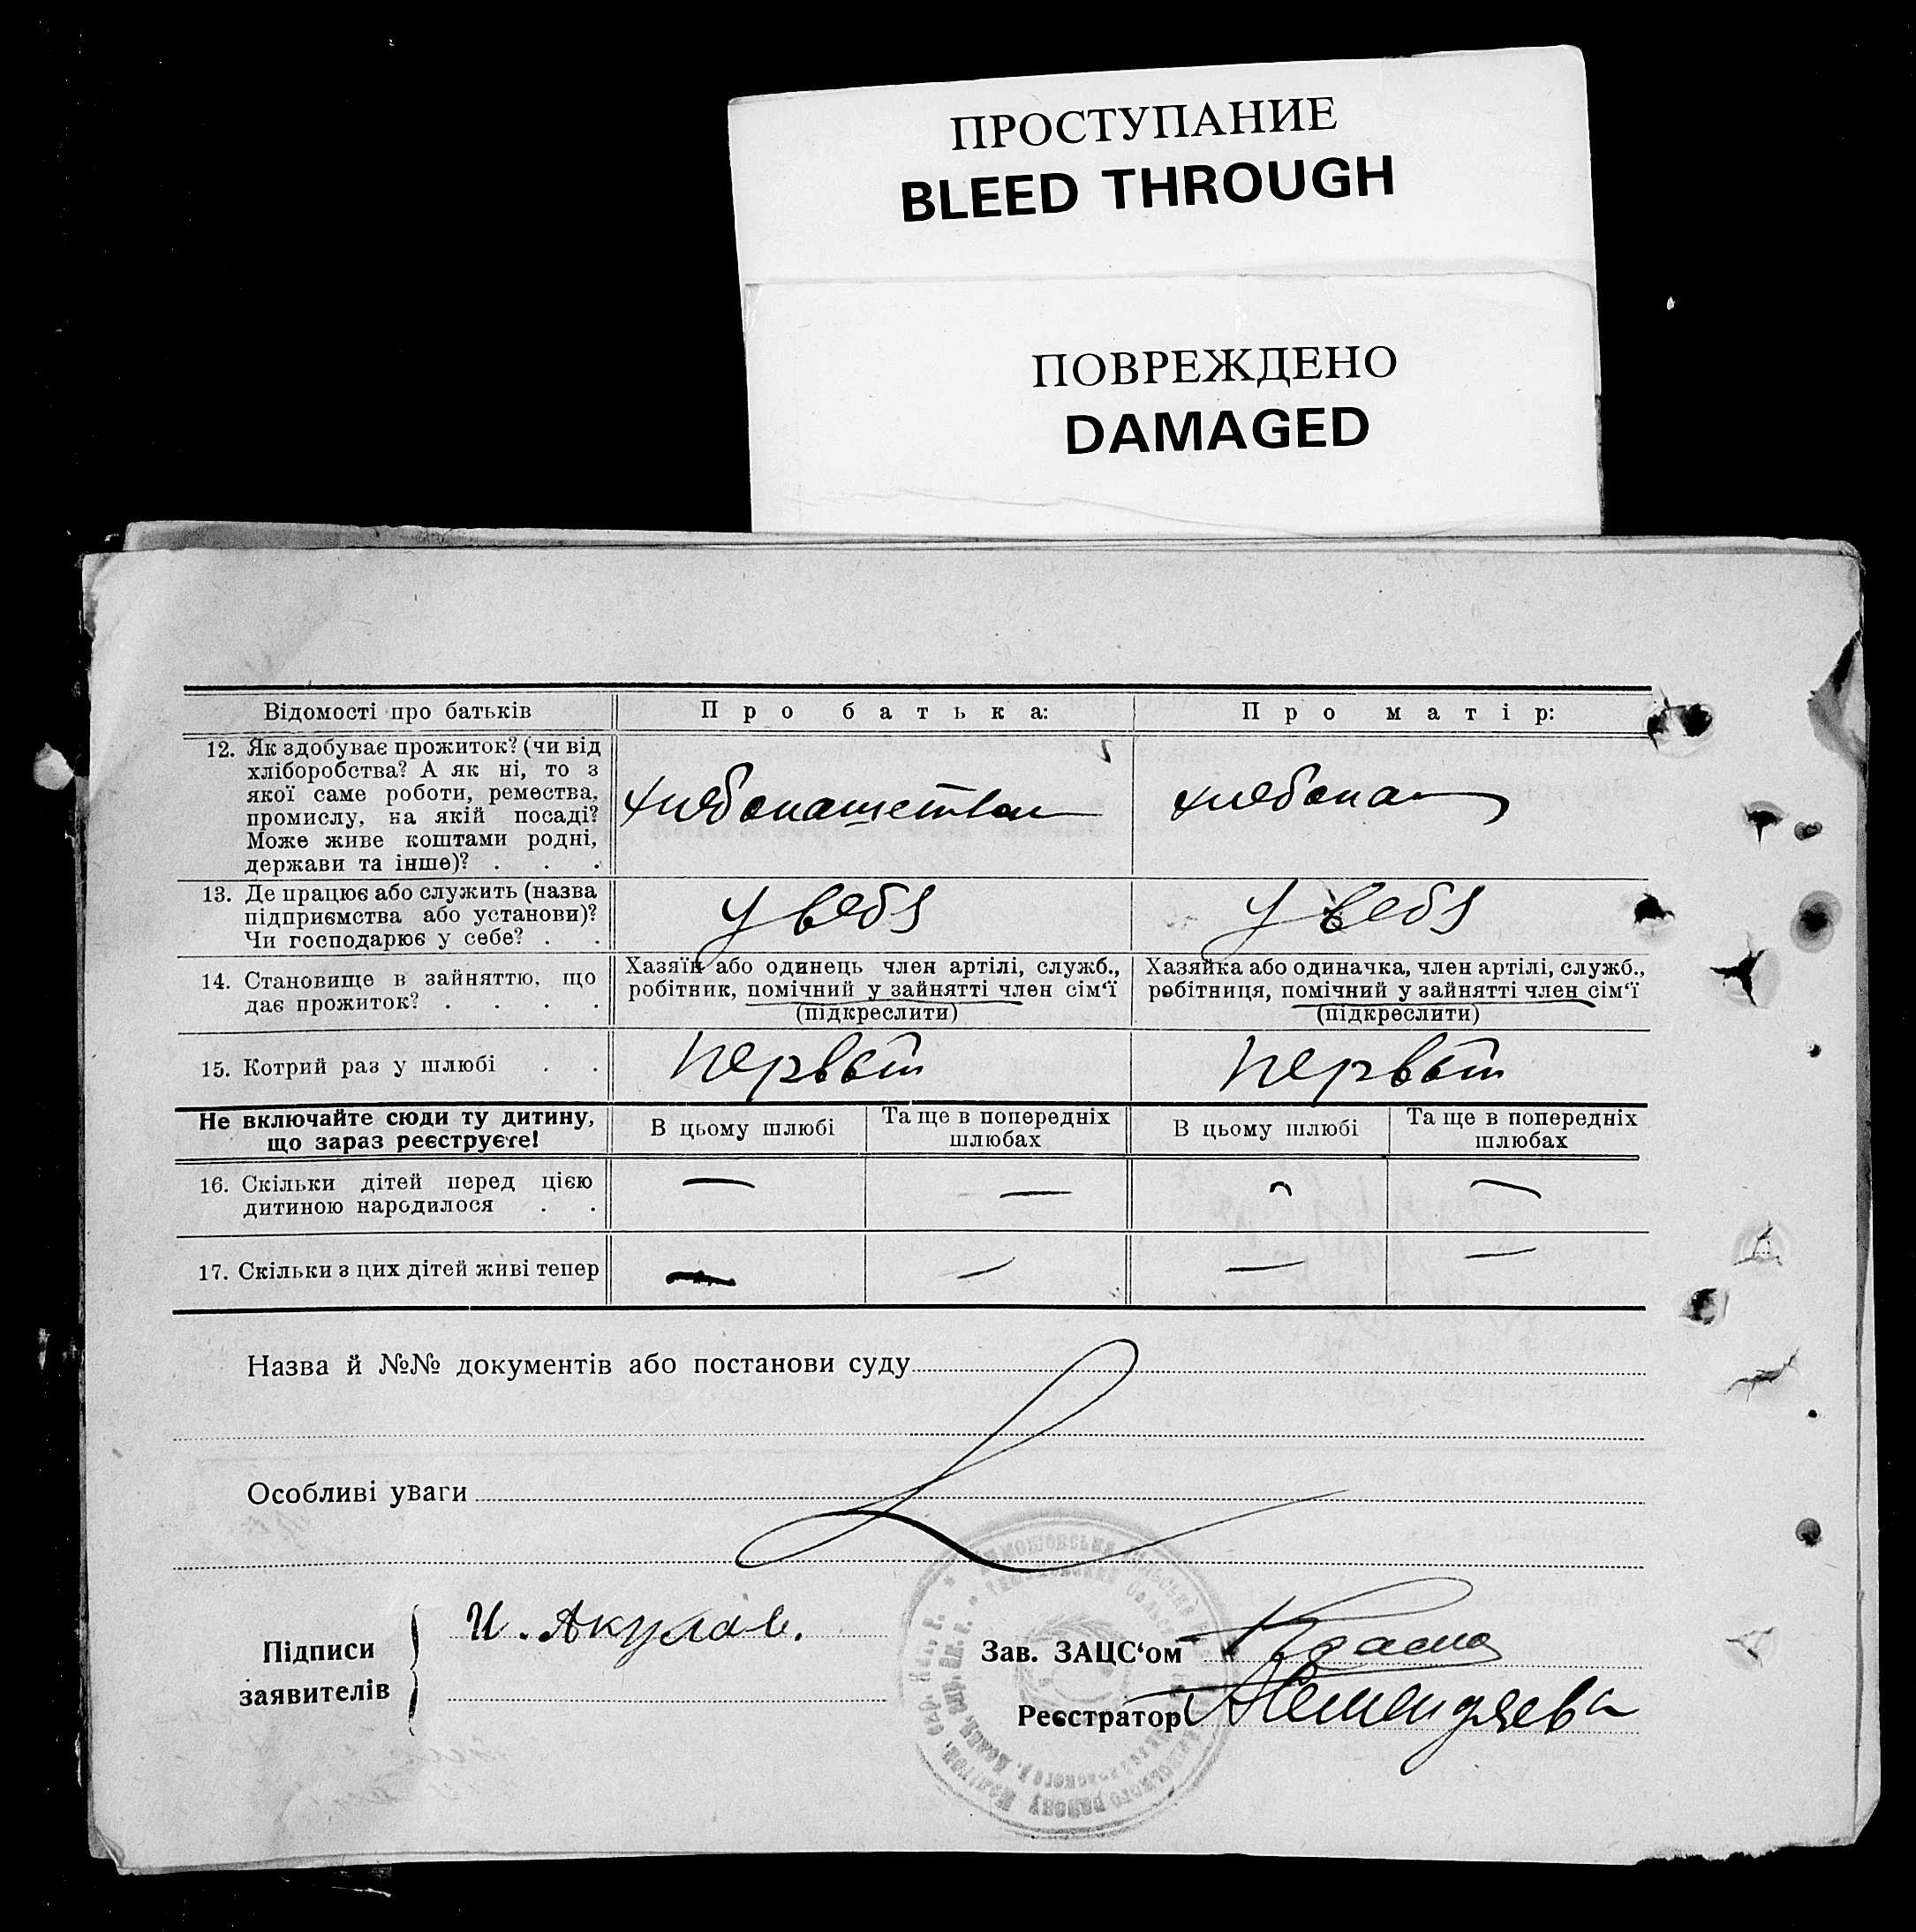 ПРОСТУПАНИЕ
BLEED THROUGH
ПОВРЕЖДЕНО
DAMAGED
Відомості про батьків
Про батька:
Про матір:
12. Як здобуває прожиток? (чи від
хліборобства? А як ні, то з
якої саме роботи, ремества,
промислу, на якій посаді?
Може живе коштами родні,
держави та інше)? . . .
хлебопашество
хлебопа
13. Де працює або служить (назва
підприємства або установи)?
Чи господарює у себе? . .
у себя
у себя
14. Становище в зайняттю, що
дає прожиток? . . . .
Хазяїн або одинець член артілі, служб.,
робітник, помічний у зайнятті член сім‘ї
(підкреслити)
Хазяйка або одиначка, член артілі, служб.,
робітниця, помічний у зайнятті член сім‘ї
(підкреслити)
15. Котрий раз у шлюбі . .
первый
первый
Не включайте сюди ту дитину,
що зараз реєструєте!
В цьому шлюбі
Та ще в попередніх
шлюбах
В цьому шлюбі
Та ще в попередніх
шлюбах
16. Скільки дітей перед цією
дитиною народилося . .
— — — —
17. Скільки з цих дітей живі тепер
— — — —
Назва й №№ документів або постанови суду
Особливі уваги
Підписи
заявителів
И. Акулов.
Зав. ЗАЦС‘ом
Реєстратор